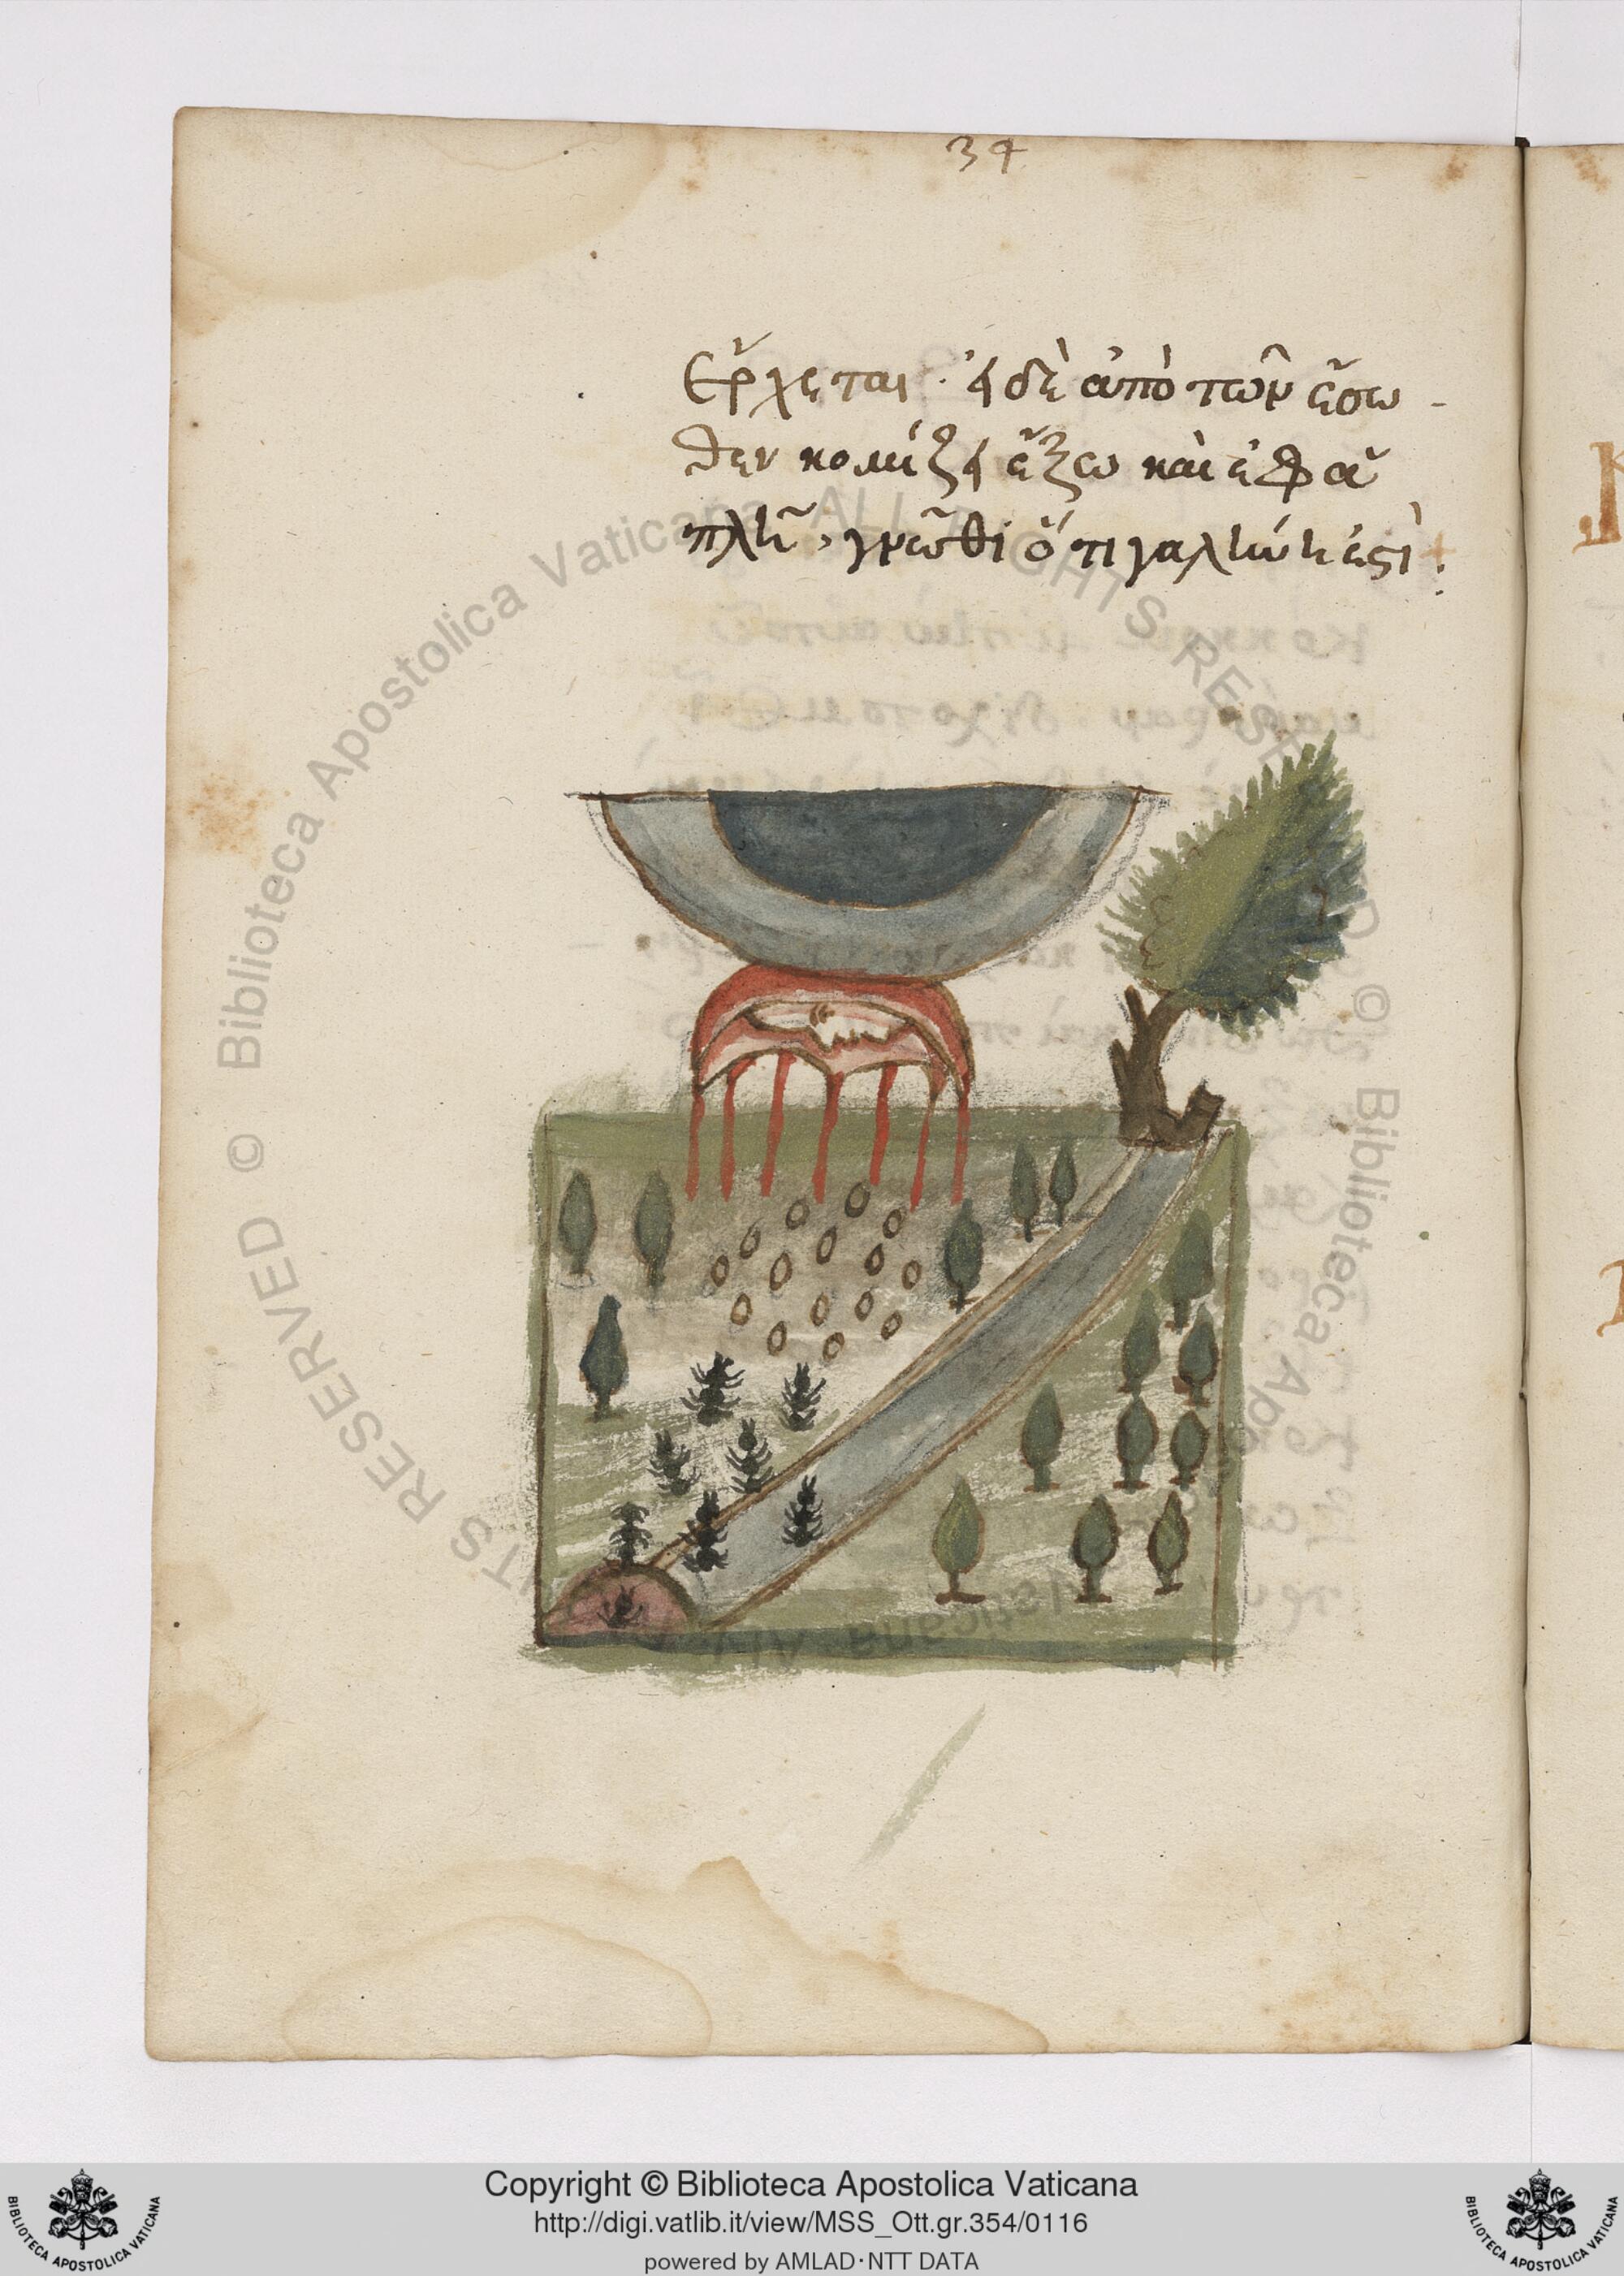 34
Ἔρχεται · εἰ δὲ ἀπὸ τῶν ἔσω -
θεν κομίζει ἔξω καὶ ἐφα
πλῆ, γνῶθι ὅτι γαλήνη ἐστὶ :
Biblioteca Apostolica Vaticana ALL RIGHTS RESERVED © Biblioteca Apostolica Vaticana ALL RIGHTS RESERVED ©
Copyright © Biblioteca Apostolica Vaticana
http://digi.vatlib.it/view/MSS_Ott.gr.354/0116
powered by AMLAD·NTT DATA
BIBLIOTECA APOSTOLICA VATICANA
BIBLIOTECA APOSTOLICA VATICANA